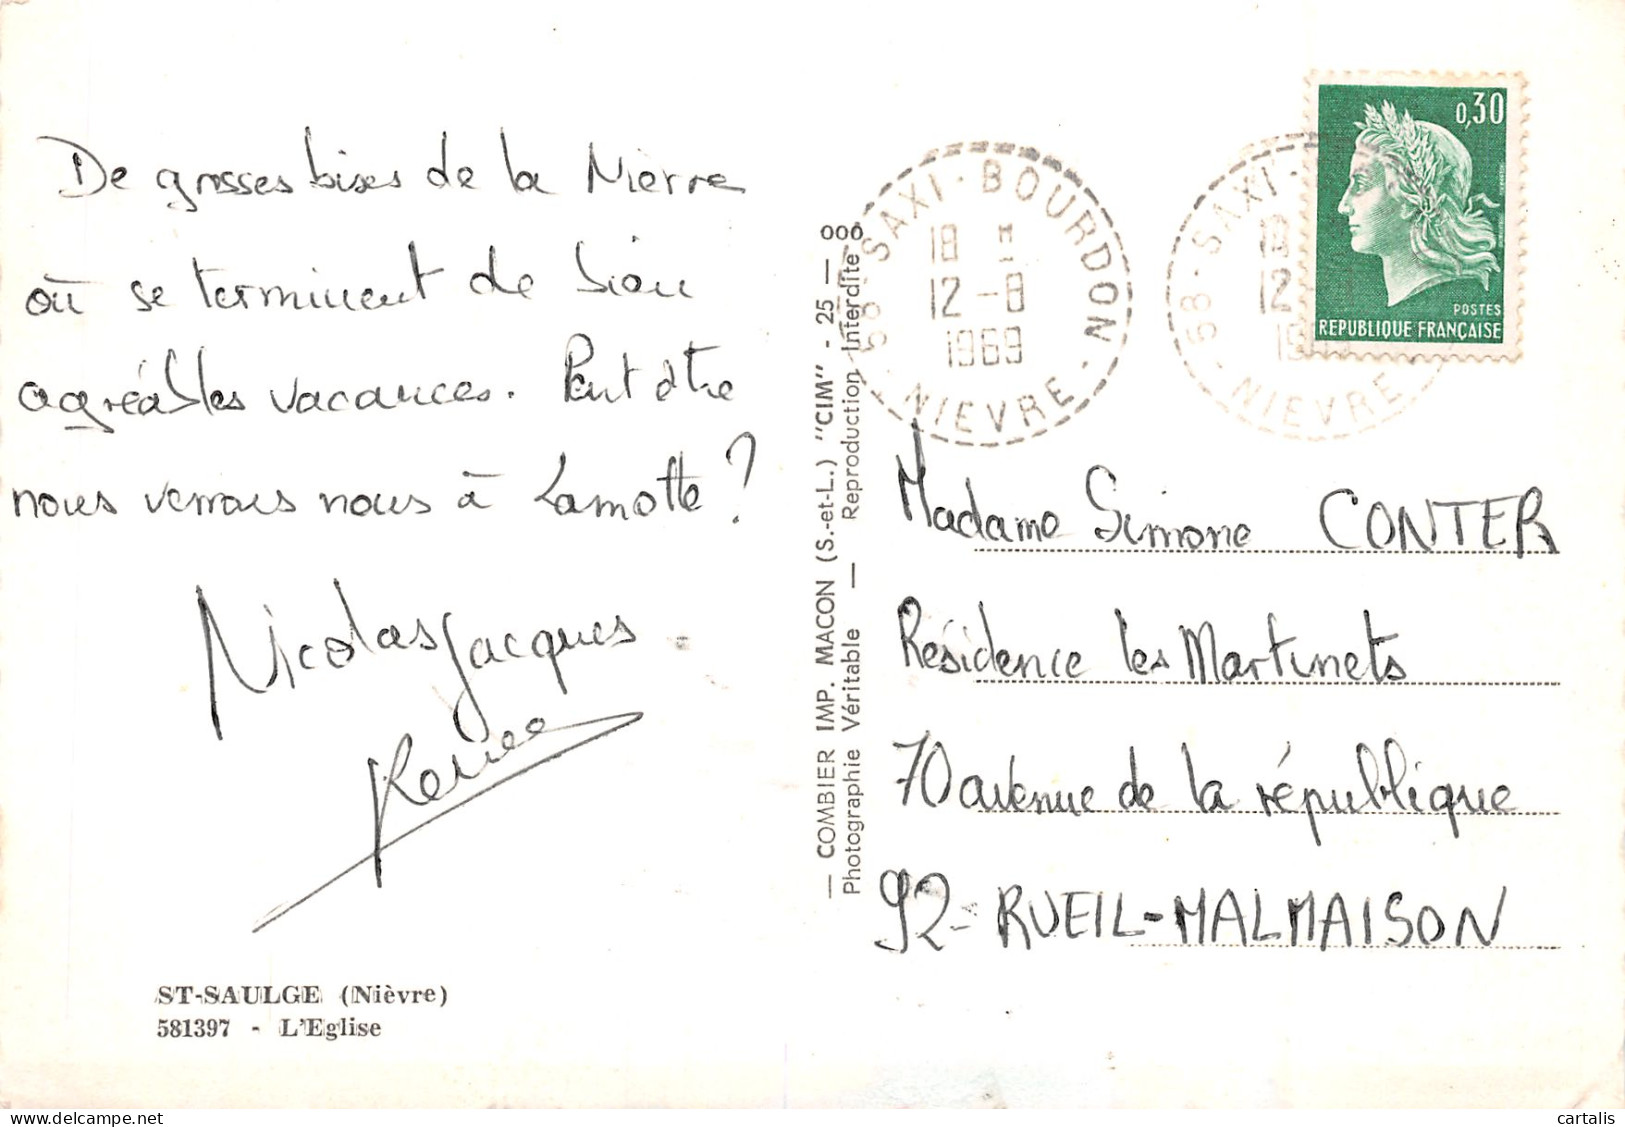 De grosses bises de la Nièvre
où se terminent de bien
agréables vacances. Peut être
nous verrons nous à Lamotte ?
Nicolas Jacques
ST-SAULGE (Nièvre)
581397 - L'Eglise
— COMBIER IMP. MACON (S.-et-L.) "CIM" - 25 — 000
Photographie Véritable — Reproduction Interdite
58 - SAXI-BOURDON - NIEVRE
18 H
12-8
1969
58 - SAXI-
18
12
19
NIEVRE
0,30
POSTES
REPUBLIQUE FRANÇAISE
Madame Simone CONTER
Résidence les Martinets
70 avenue de la république
92 - RUEIL-MALMAISON
cartalis